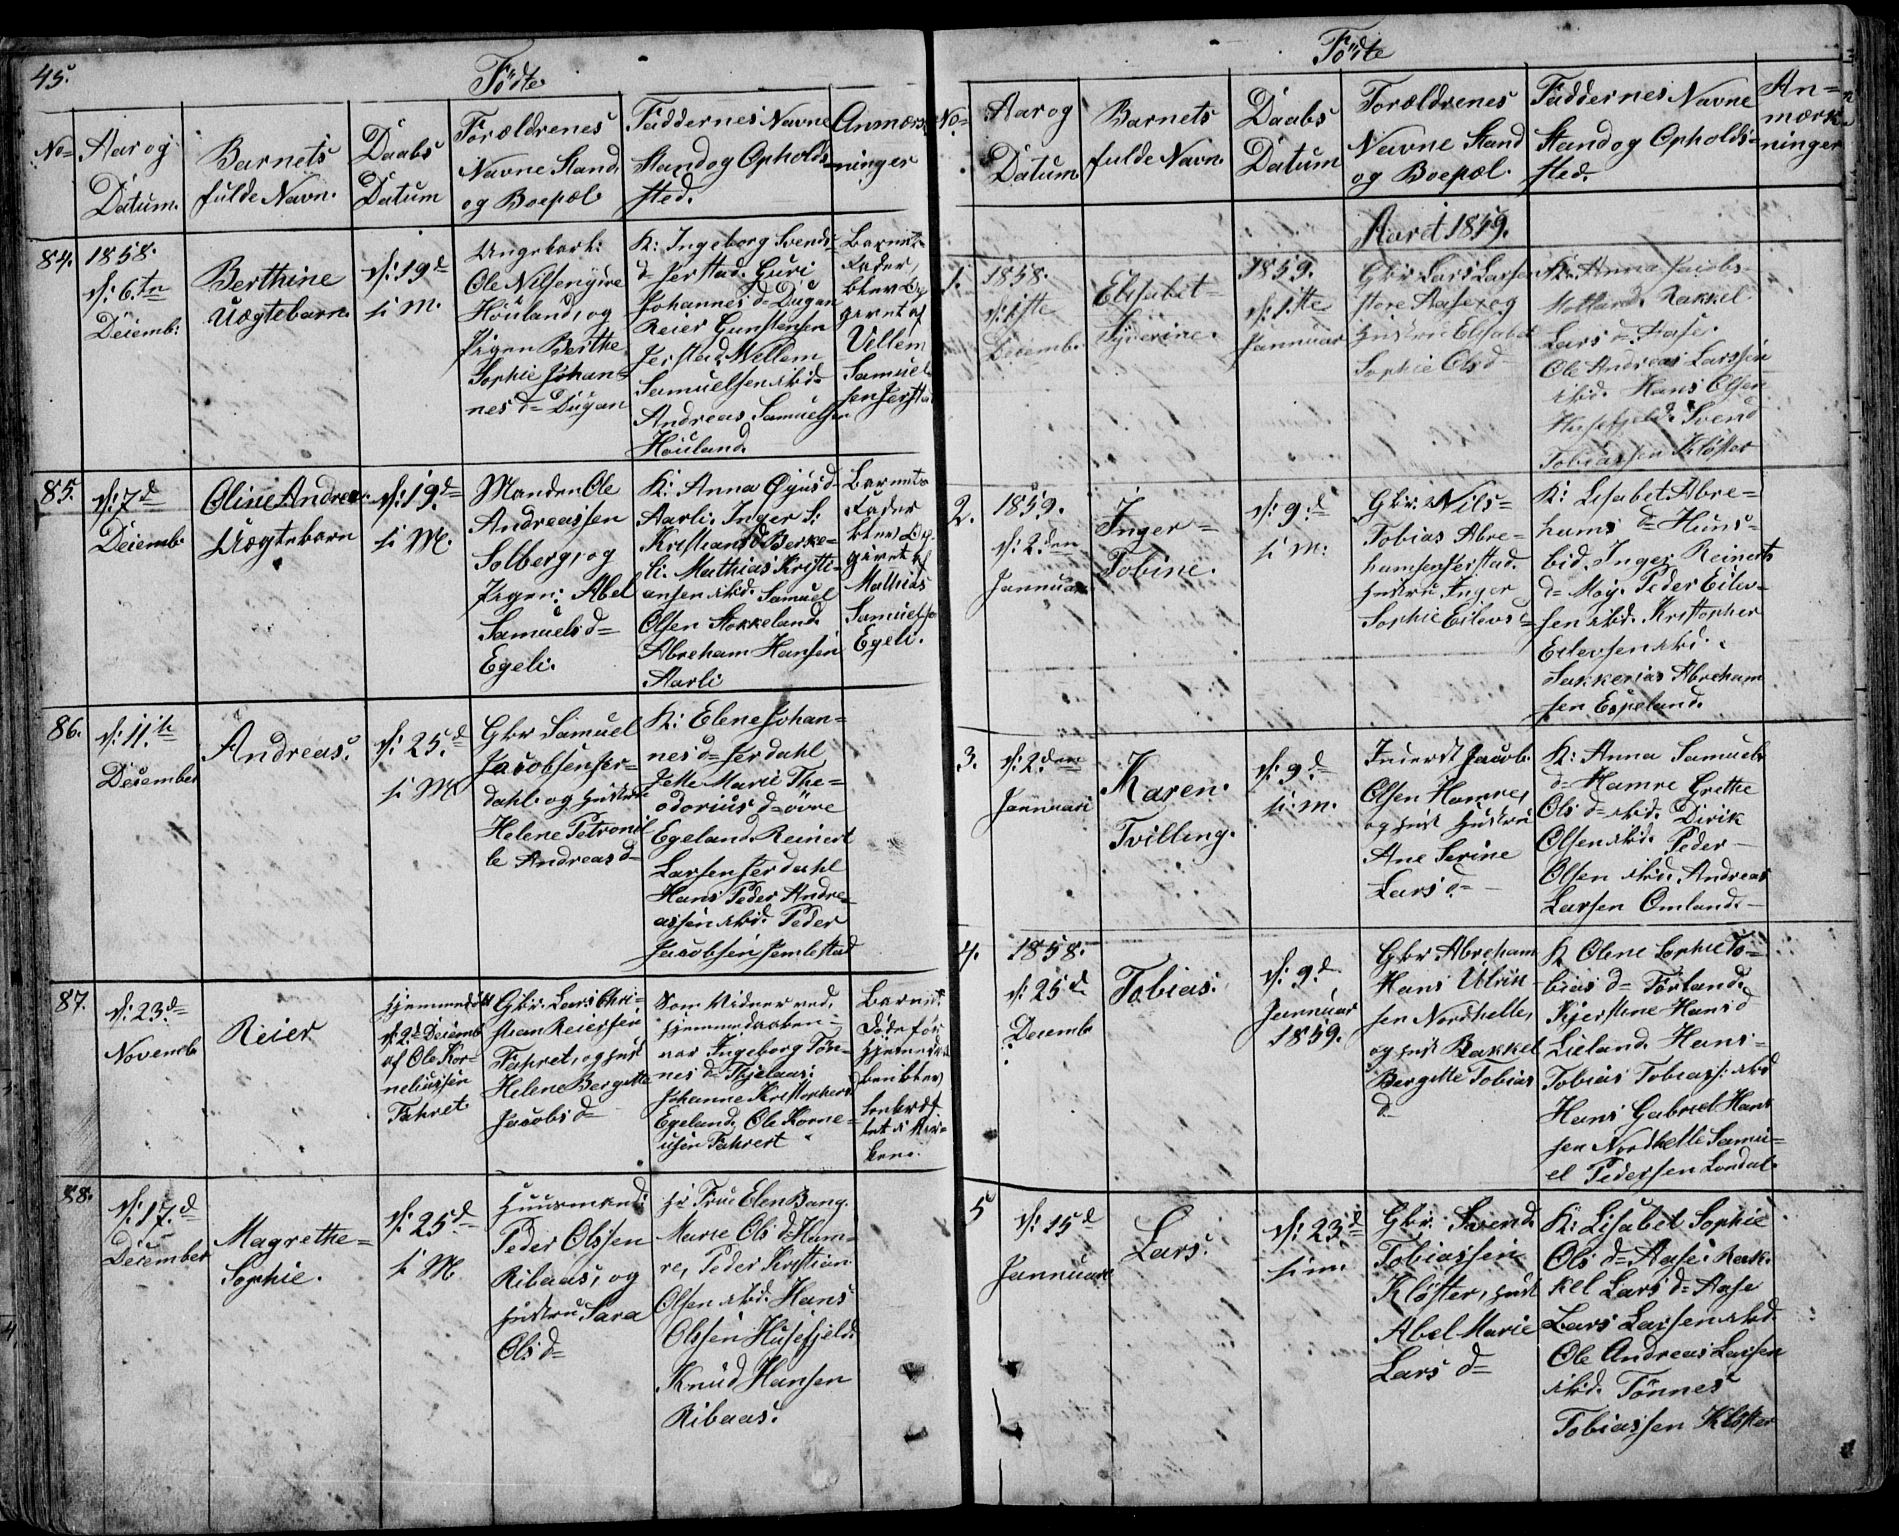 45.
Födte
No= Aar og Datum.
Barnets fulde Navn.
Daabs Datum
Forældrenes Navne Stand og Boepæl
Faddernes Navne Stand og Opholds= sted.
Anmærk= ninger
84.
1858.
d: 6.te
Decemb:
Berthine
Uægtebarn.
d: 19d=
s: M.
Ungekarl:
Ole Nilsen
Höuland, og
Pigen Berthe
Sophie Johan=
nes d= Dugan
K: Ingeborg Svends
d= Jerstad. Guri
Johannes d= Dugan
Reier Gunstensen
Jerstad. Willem
Samuelsen ibid=
Andreas Samuelsen
Höuland.
Barnets
Fader,
blev
af
Villem
Samuel
sen Jersta
85.
d: 7d
Decemb.
Oline Andrea.
Uægtebarn
d: 19.d=
s: M.
Manden Ole
Andreassen
Solberg, og
Pigen: Abel
Samuelsd=
Egeli.
K: Anna
Aarli. Inger S:
Kristians d Berke=
li. Mathias Kristi=
ansen ibid. Samuel
Olsen Stokkeland.
Abreham Hansen
Aarli
Barnets
Fader
blev
af
Mathias
Samuelse
Egeli.
86.
d: 11.te
December
Andreas.
d: 25.d
s: M
Gbr Samuel
Jacobsen Fer=
dahl. og Hustrue
Helene Petronil
le Andreas d=
K: Elene Johan=
nes d= Ferdahl
Jette Marie The=
odorius d= övre
Egeland. Reinert
Larsen Ferdahl
Hans Peder Andre=
assen ibid. Peder
Jacobsen Jemlestad
87.
d: 23.d=
Novemb.
Reier
Hjemmedöbt
d: 2.d Decemb
af Ole Kor=
neliussen
Fahret
Gbr: Lars Chri=
stian Reiersen
Fahret, og Hust
Helene Bergitte
Jacobs d=
Som Vidner ved,
Hjemmedaaben=
var Ingeborg Tön=
nes d= Fhjelaas:
Johanne Kristophers
Egeland. Ole Korne=
usen Fahret
Barnet
Döde för
88.
d: 17.d
December
Magrethe=
Sophie.
d: 25d=
s: M
Huusmand:
Peder Olssen
Ribaas, og
Hustru Sara
Ols d=
Hr Frue Elen Bang.
Marie Ols d. Ham=
re, Peder Kristian
Olsen ibid. Hans
Olssen Husefjeld.
Knud Hansen
Ribaas.
Födte
No=
Aar og Datum
Barnets fulde Navn.
Daabs Datum
Forældrenes Navne Stand og Boepæl.
Faddernes Navne Stand og Opholds= sted.
An= mærk= ninger
Aaret 1859.
1.
1858.
d: 1ste
Decemb.
Elisabet=
1859.
d: 1.ste
Januar
Gbr Lars Larsen
store Aase, og
Hustru Elisabet
Sophie Ols d
K: Anna Jacobs
Rakkel
Lars d. Aase.
Ole Andreas Larssen
ibid. Hans Olsen
Husefjeld. Svend
Tobiassen Klöster
2.
1859.
d: 2.den
Jannuar
Inger=
Tobine.
d: 9.d=
s: m:
Gbr. Nils=
Tobias Abre=
hamsen Jerstad.
Hustru Inger
Sophie Eilevs d=
K: Lisabet Abre=
hams d= Huns=
bid. Inger Reinerts
d= Moj. Peder Eilev=
sen ibid. Kristopher
Eilevsen ibid.
Sakkerias Abreham
sen Espeland.
3.
d: 2.den
Jannuari
Karen.
Tvilling.
d: 9.d=
s: m.
Jacob.
Olsen Hamre,
og Hustru
Ane Serine
Lars d=
K: Anna Samuels
d= Hamre Grethe
Ols d= ibid. Dirik
Olsen ibid. Peder=
Olsen ibid. Andreas
Larsen Omland.
4.
1858.
d: 25d
Decemb
Tobias.
d: 9.d
Jannuar
1859.
Gbr Abreham
Hans Ulrik=
sen Nordhelle,
og Hust Rakkel
Bergitte Tobias
d=
K Olene Sophie To=
bias d= Förland.
Kjerstine Hans d
Lieland. Hans=
Tobias Tobiass: ibid
Hans Gabriel Hans
sen Nordhelle Samu=
el Pedersen Londal.
5
d: 15d
Jannuar
Lars.
d: 23d=
s: m
Gbr. Svend.
Tobiassen
Klöster, Hust
Abel Marie
Lars d=
K: Lisabet Sophie
Ols d= Aase. Rak=
kel Lars d= Aase
Lars Larsen ibid.
Ole Andreas Larsen
ibid. Tönnes
Tobiassen Klöster